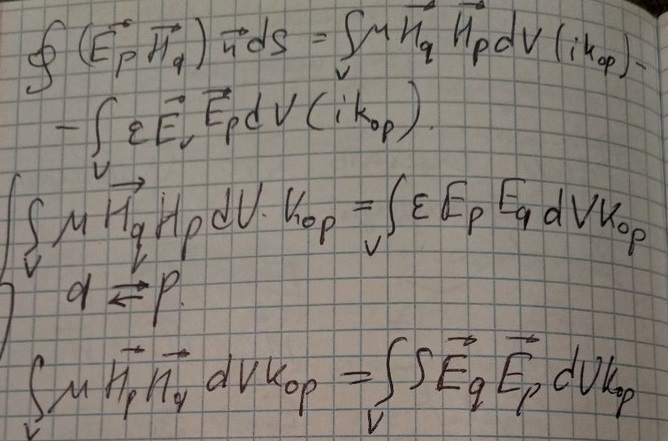 ∮ (E⃗_p H⃗_q) n⃗ dS = ∫_V μ H⃗_q H⃗_p dV (i k_op) -
- ∫_V ε E⃗_v E⃗_p dV (i k_op).
∫_V μ H⃗_q H_p dV · k_op = ∫_V ε E_p E_q dV k_op
q ⇄ p.
∫_V μ H⃗_p H⃗_q dV k_op = ∫_V S E⃗_q E⃗_p dV k_op